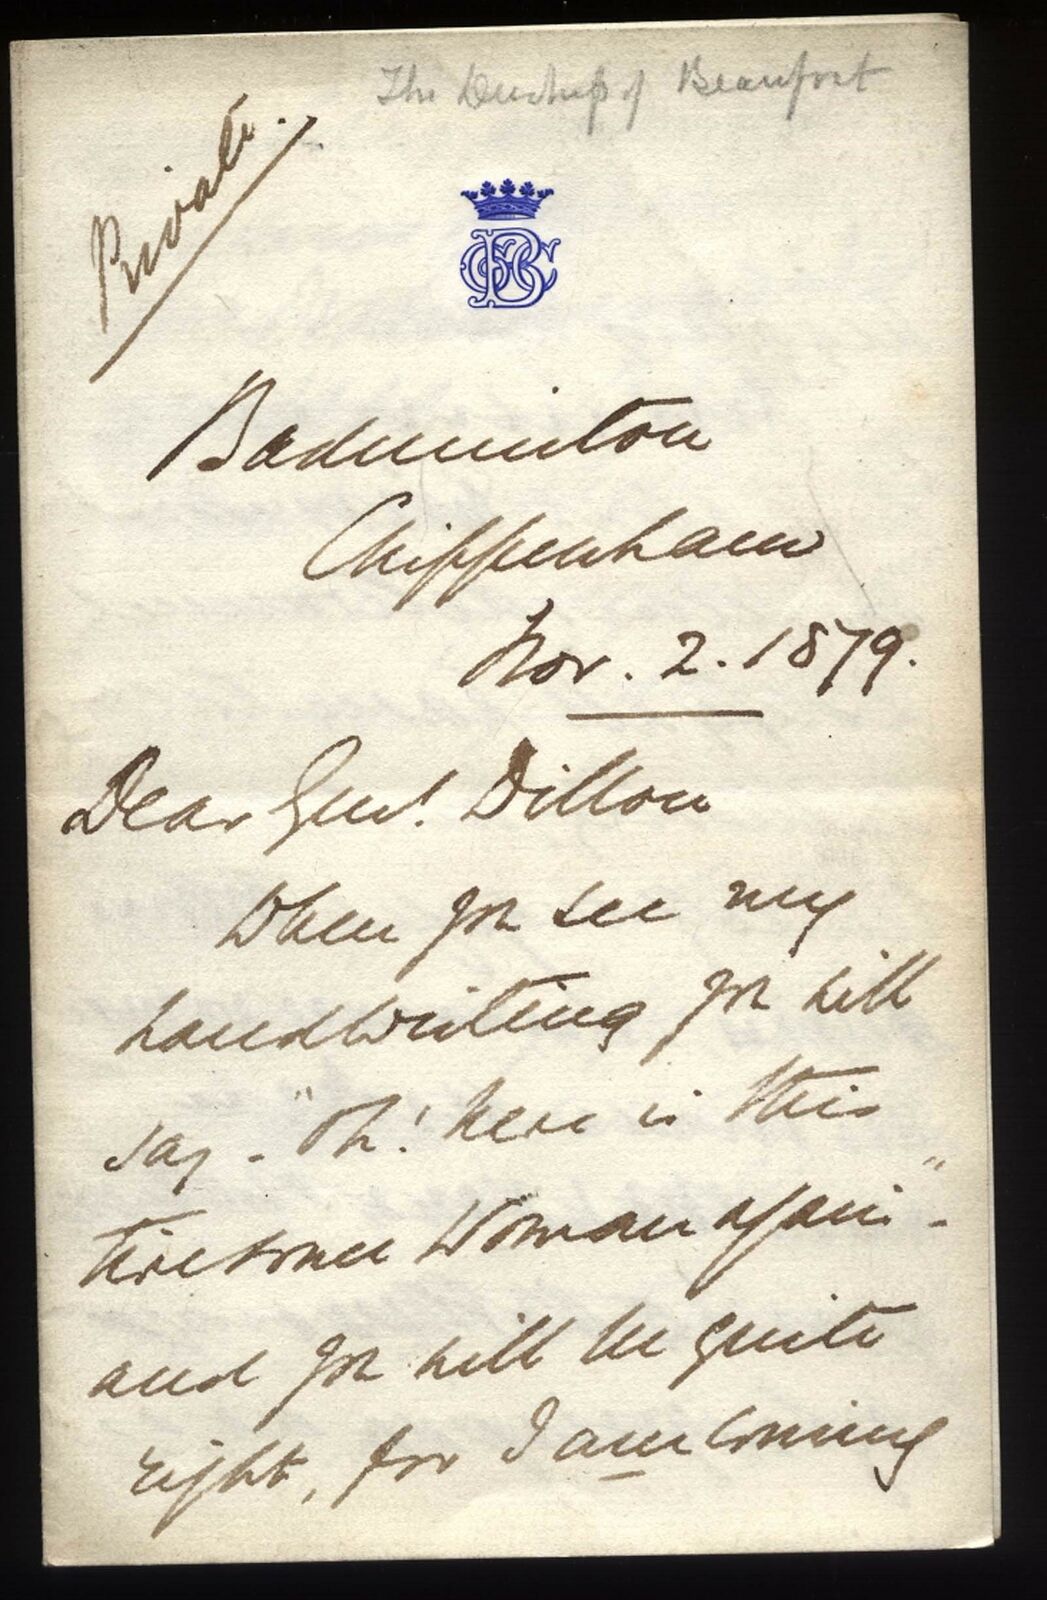 The Duchess of Beaufort
Private.
Badminton
Chippenham
Nov. 2. 1879.
Dear Genl. Dillon
When you see my
handwriting you will
say - "Oh! here is this
tiresome Woman again" -
and you will be quite
right, for I am coming